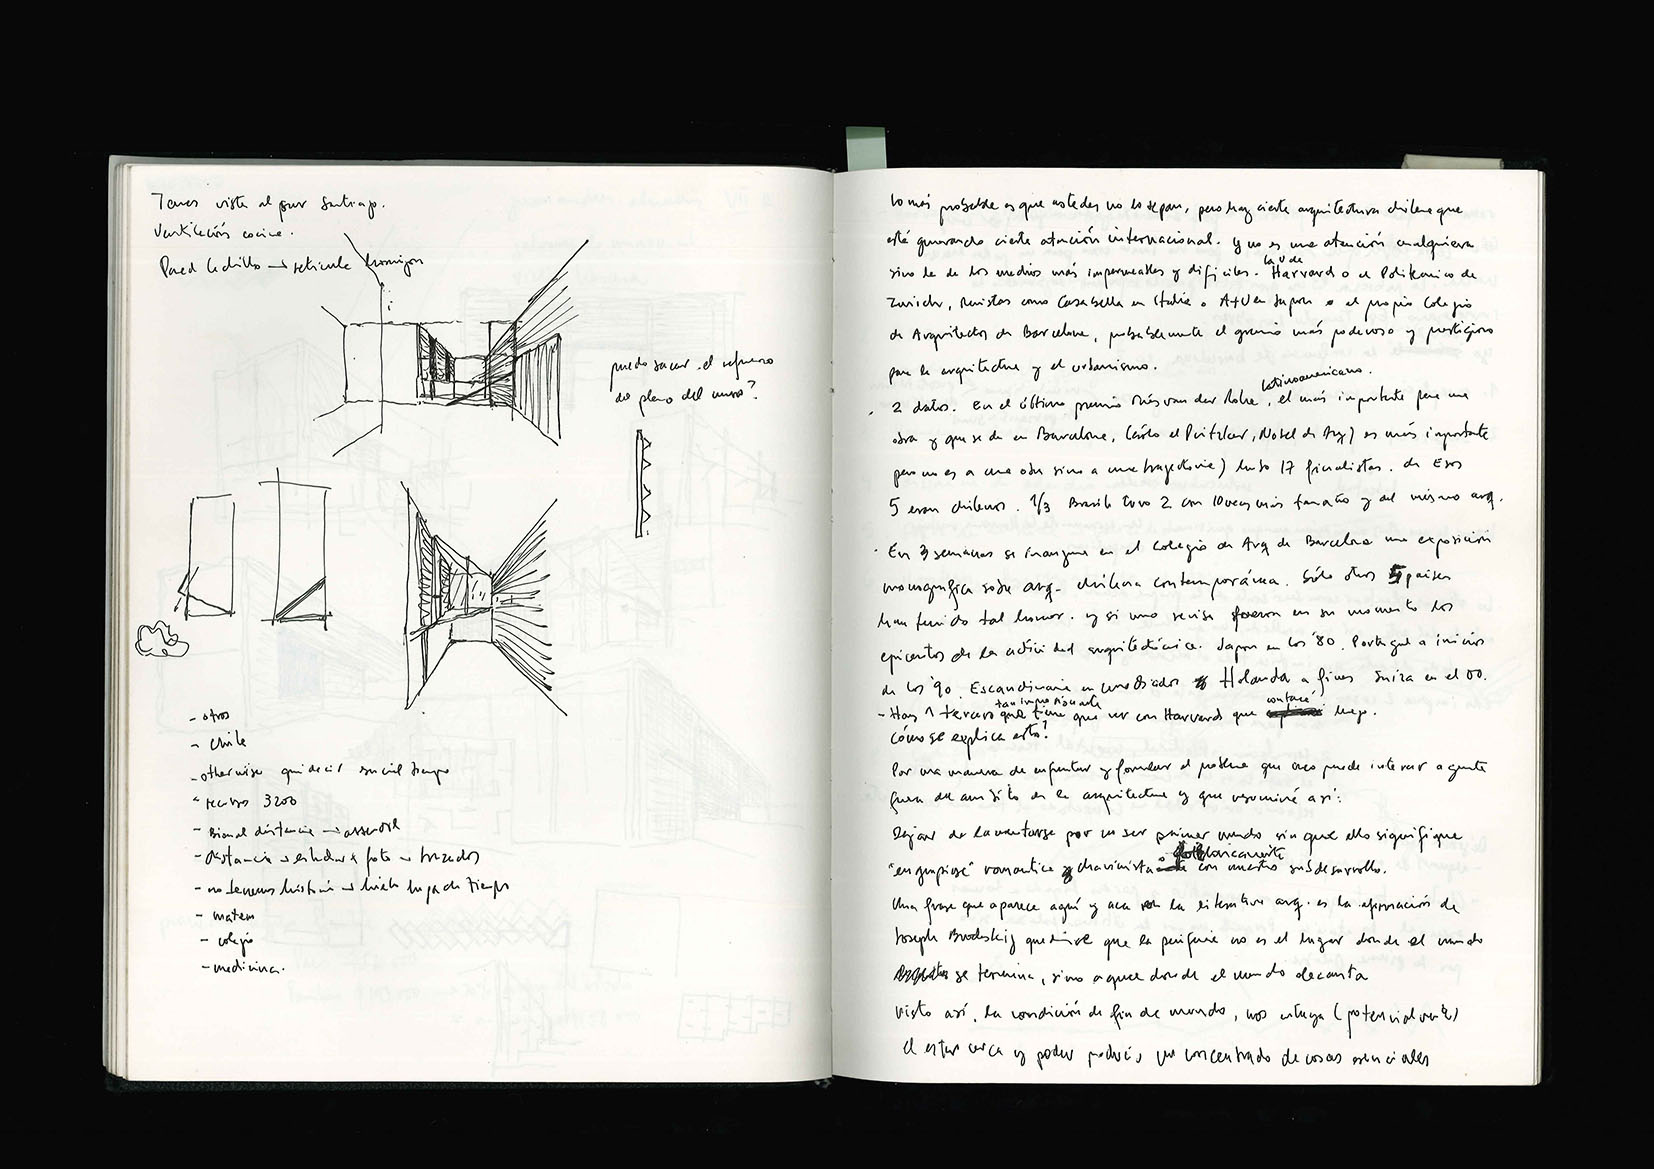 Tener vista al sur Santiago.
Ventilación cocina.
Pared ladrillo → retícula hormigón
puedo sacar el refuerzo
do plano del muro?
- otros
- chile
- otherwise qui decir small tiempo
- recursos 3200
- Bional distancia →
- distancia → estudiar x foto → trazados
- no tenemos historia → tiempo
- matem
- colegio
- medicina.
Lo más probable es que ustedes no lo sepan, pero hay cierta arquitectura chilena que
está generando cierta atención internacional. y no es una atención cualquiera
sino la de los medios más impermeables y difíciles. la U de Harvard o el Politécnico de
Zurich, Revistas como Casabella en Italia o A+U en Japon o el propio Colegio
de Arquitectos de Barcelona, probablemente el gremio más poderoso y prestigioso
para la arquitectura y el urbanismo.
2 datos. En el último premio Mies van der Rohe latinoamericano, el más importante para una
obra y que se da en Barcelona, (sólo el Pritzker, Nobel de Arq) es más importante
pero no es a una obra sino a una trayectoria) hubo 17 finalistas. de Esos
5 eran chilenos. 1/3 Brasil tuvo 2 con 10 veces más tamaño y del mismo arq.
· En 3 semanas se inaugura en el Colegio de Arq de Barcelona una exposición
monográfica sobre arq. chilena contemporánea. Sólo otros 5 países
han tenido tal honor. y si uno revisa fueron en su momento los
epicentros de la actividad arquitectónica. Japon en los '80. Portugal a inicios
de los '90. Escandinavia en mediados Holanda a fines Suiza en el 00.
- Hay 1 tercero tan impresionante que tiene que ver con Harvard que contaré luego.
Cómo se explica esto?
Por una manera de enfrentar y formular el problema que creo puede interesar a gente
fuera del ámbito de la arquitectura y que resumiré así:
Dejar de lamentarse por no ser primer mundo sin que ello signifique
"engrupirse" romantica y chauvinista o folkloricamente con nuestro subdesarrollo.
Una frase que aparece aquí y acá en la literatura arq. es la afirmación de
Joseph Brodskij que dice que la periferia no es el lugar donde el mundo
se termina, sino aquel donde el mundo decanta
visto así, la condición de fin de mundo, nos obliga (potencialmente)
el estar cerca y poder producir un concentrado de cosas esenciales